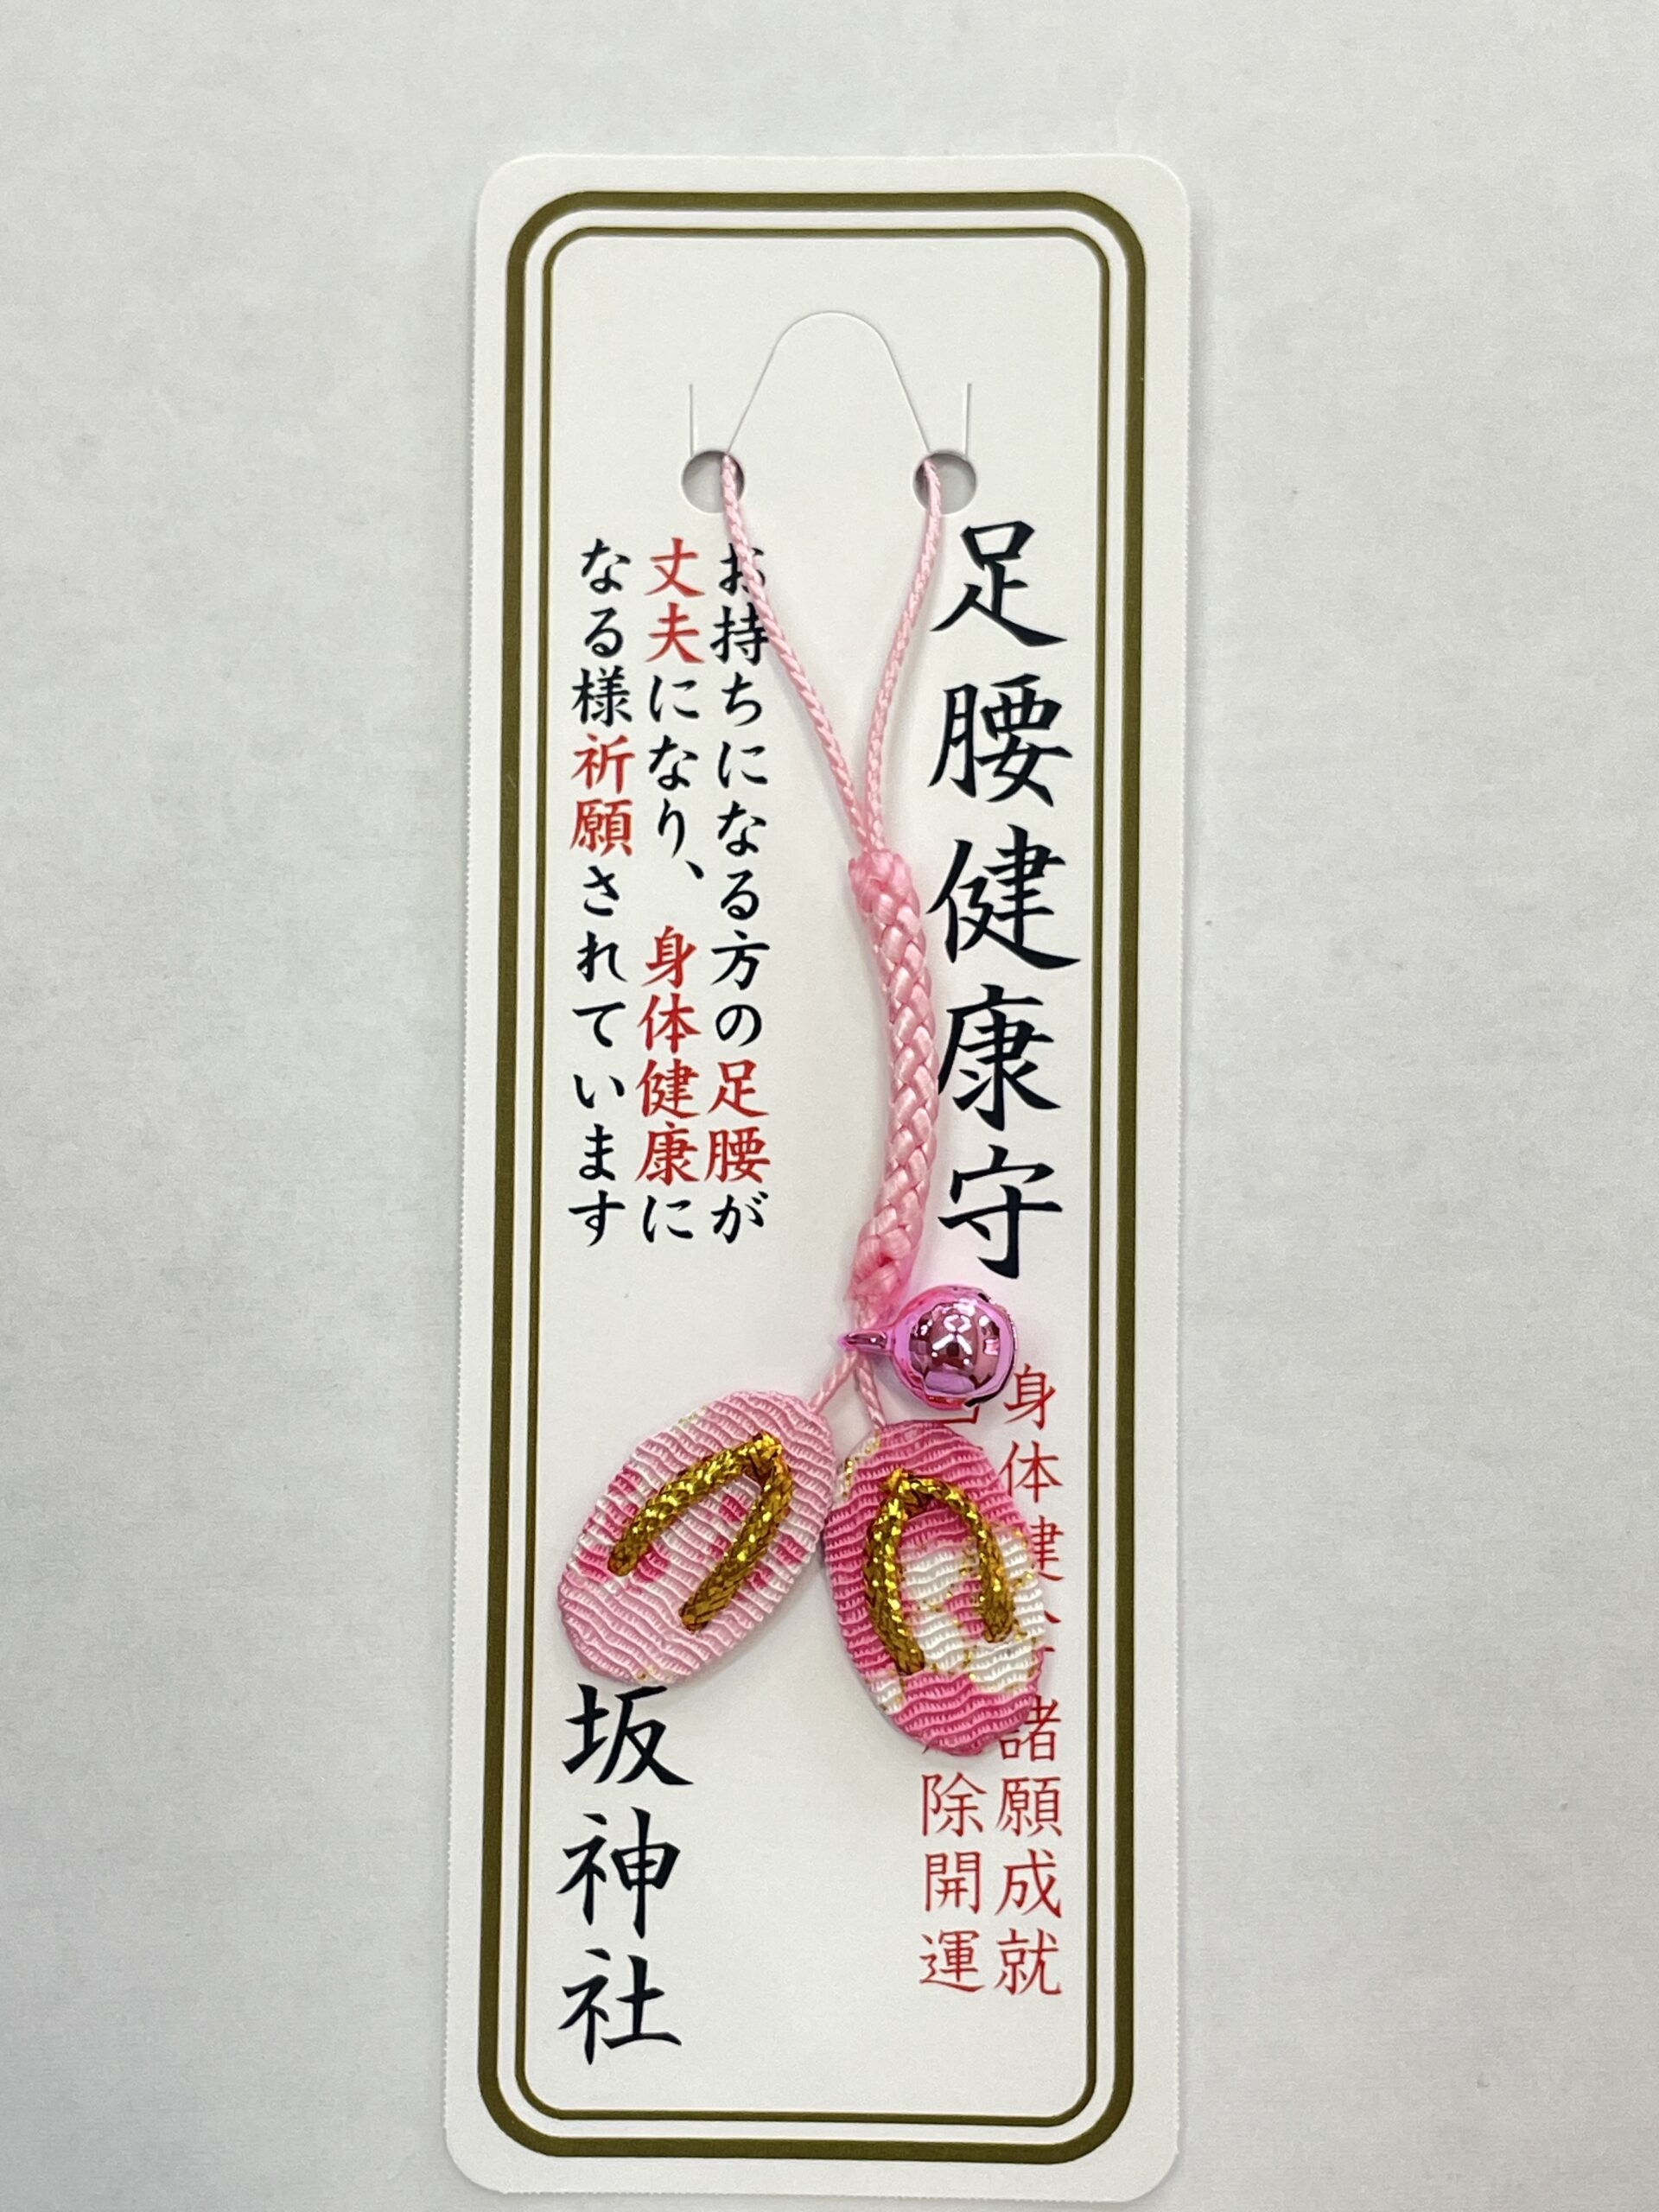 足腰健康守
身体健 諸願成就
除開運
お持ちになる方の足腰が
丈夫になり、身体健康に
なる様祈願されています
坂神社